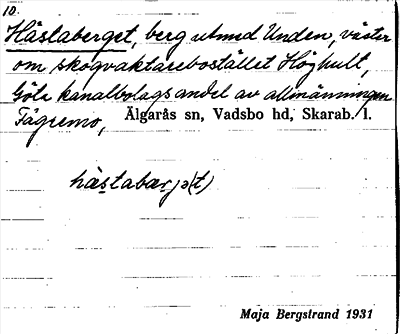 10.
Hästaberget, berg utmed Unden, väster
om skogvaktarebostället Höghult,
Göta kanalbolags andel av allmänningen
Tågremo, Älgarås sn, Vadsbo hd, Skarab. l.
hästabærjə(t)
Maja Bergstrand 1931